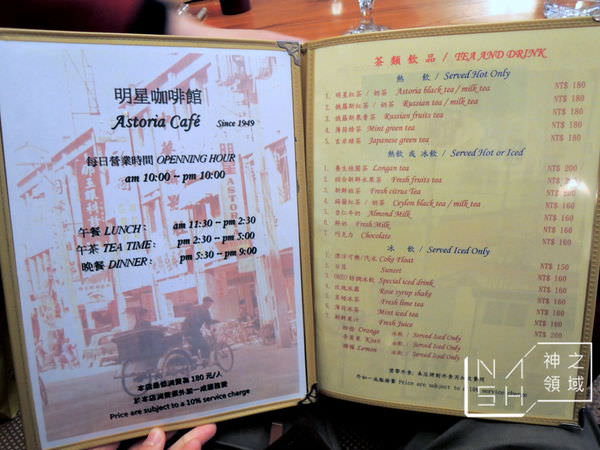 明星咖啡館
Astoria Café Since 1949
每日營業時間 OPENNING HOUR
am 10:00 ~ pm 10:00
午餐 LUNCH : am 11:30 ~ pm 2:30
午茶 TEA TIME : pm 2:30 ~ pm 5:00
晚餐 DINNER : pm 5:30 ~ pm 9:00
本店最低消費為 180 元/人
於本店消費額外加一成服務費
Price are subject to a 10% service charge
ASTORIA
茶類飲品 / TEA AND DRINK
熱 飲 / Served Hot Only
1. 明星紅茶 / 奶茶 Astoria black tea / milk tea NT$ 180
2. 俄羅斯紅茶 / 奶茶 Russian tea / milk tea NT$ 180
3. 俄羅斯果香茶 Russian fruits tea NT$ 180
4. 薄荷綠茶 Mint green tea NT$ 180
5. 玄米綠茶 Japanese green tea NT$ 180
熱飲 或 冰飲 / Served Hot or Iced
1. 養生桂圓茶 Longan tea NT$ 200
2. 綜合新鮮水果茶 Fresh fruits tea NT$ 200
3. 新鮮桔茶 Fresh citrus Tea NT$ 200
4. 錫蘭紅茶 / 奶茶 Ceylon black tea / milk tea NT$ 160
5. 杏仁牛奶 Almond Milk NT$ 160
6. 鮮奶 Fresh Milk NT$ 160
7. 巧克力 Chocolate NT$ 160
冰 飲 / Served Iced Only
1. 漂浮可樂/汽水 Coke Float NT$ 150
2. Sunset NT$ 160
3. 特調冰飲 Special iced drink NT$ 160
4. 玫瑰冰露 Rose syrup shake NT$ 160
5. Fresh lime tea NT$ 160
6. 薄荷冰茶 Mint iced tea NT$ 160
7. 新鮮果汁 Fresh Juice NT$ 160
柳橙 Orange 冰飲 / Served Iced Only NT$ 200
奇異果 Kiwi 冰飲 / Served Iced Only
檸檬 Lemon 冰飲 / Served Iced Only
另加一成服務費 Price are subject to a 10% service charge
神之領域